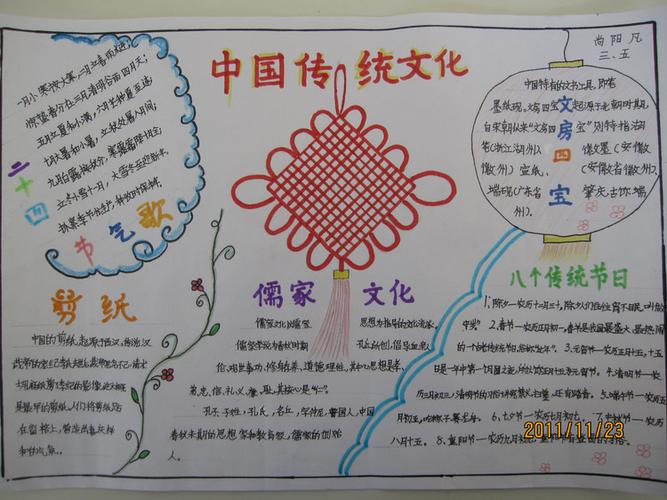 中国传统文化
尚阳凡
三、五
二十四节气歌
一月小寒接大寒,二月立春雨水连;
惊蛰春分在三月,清明谷雨四月天;
五月立夏和小满,六月芒种夏至连;
七月大暑和小暑,立秋处暑八月间;
九月白露接秋分,寒露霜降十月全;
立冬小雪十一月,大雪冬至迎新年。
抓紧季节忙生产,种收及时保丰年。
文房四宝
中国特有的文书工具,即笔
墨纸砚。文房四宝之名,起源于南北朝时期。
自宋朝以来“文房四宝”则特指湖
笔(浙江湖州)、徽墨(安徽
徽州)、宣纸、(安徽省徽州)
端砚(广东省肇庆,古称端
州)。
剪纸
中国的剪纸,起源于西汉,
是最早的剪纸。人们将剪纸贴
在窗格上,
儒家文化
儒家文化以儒家思想为指导的文化流派。
儒家学说为春秋时期孔丘所创,倡导血亲人
伦、现世事功、修身存养、道德理性,其中心思想是孝、
弟、忠、信、礼、义、廉、耻,其核心是“仁”。
孔子,子姓,孔氏,名丘,字仲尼,鲁国人,中国
春秋末期的思想家和教育家,儒家的创始
人。
八个传统节日
1、除夕—农历十二月三十,除夕人们往往通宵不眠,叫作“
守岁” 2、春节—农历正月初一,春节是我国最盛大、最热闹
的一个古老传统节日,俗称“过年”。 3、元宵节—农历正月十五,十五
日是一年中第一个月圆之夜,所以称元宵节。 4、清明节—农
5、端午节—农历五
月初五,吃粽子赛龙舟。 6、七夕节—农历七月初七。 7、中秋节—农历
八月十五。 8、重阳节—农历九月初九,
2011/11/23